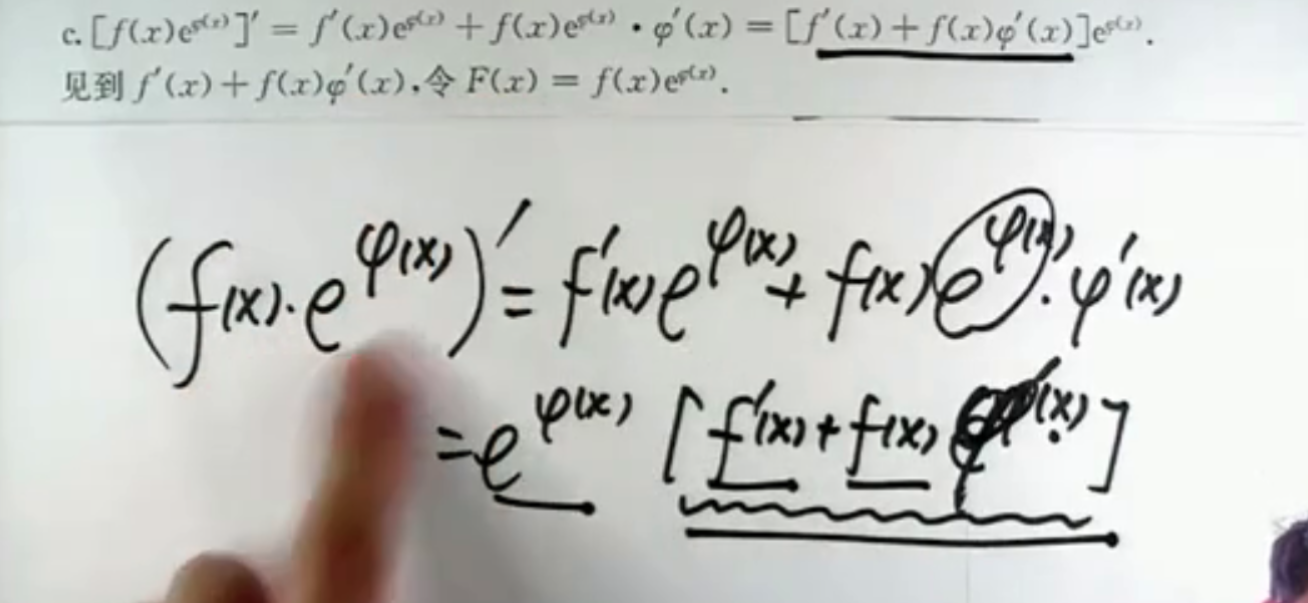 c. [f(x)e^φ(x)]′ = f′(x)e^φ(x) + f(x)e^φ(x) · φ′(x) = [f′(x) + f(x)φ′(x)]e^φ(x).
见到 f′(x) + f(x)φ′(x),令 F(x) = f(x)e^φ(x).
(f(x)·e^φ(x))′ = f′(x)e^φ(x) + f(x)e^φ(x)·φ′(x)
= e^φ(x) [f′(x) + f(x)φ′(x)]